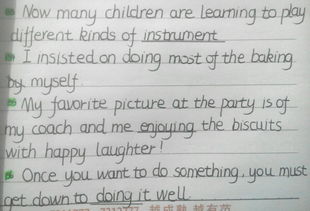 Now many children are learning to play
different kinds of instrument
I insisted on doing most of the baking
by myself.
My favorite picture at the party is of
my coach and me enjoying the biscuits
with happy laughter!
Once you want to do something, you must
get down to doing it well.